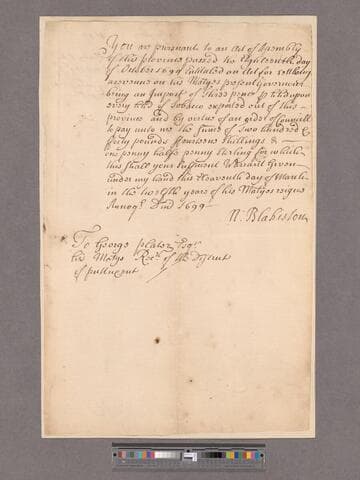 You are pursuant to an Act of Assembly
of this Province passed the Eighteenth day
of October 1694 Intituled an Act for Settling
assurance on his Matyes present Governmt
being an Impost of three pence p hhd upon
every hhd of Tobacco exported out of this
province and by virtue of an order of Councill
to pay unto me the sume of Two hundred &
forty pounds fourteen shillings &
one penny halfe penny sterling for which
this shall be your sufficient Warrant Given
under my hand this Eleaventh day of March
in the twelfth yeare of his Matyes reigne
Annoq Dni 1699
N: Blakiston
To George Plater Esqr
his Matyes Recr of the District
of puttuxent